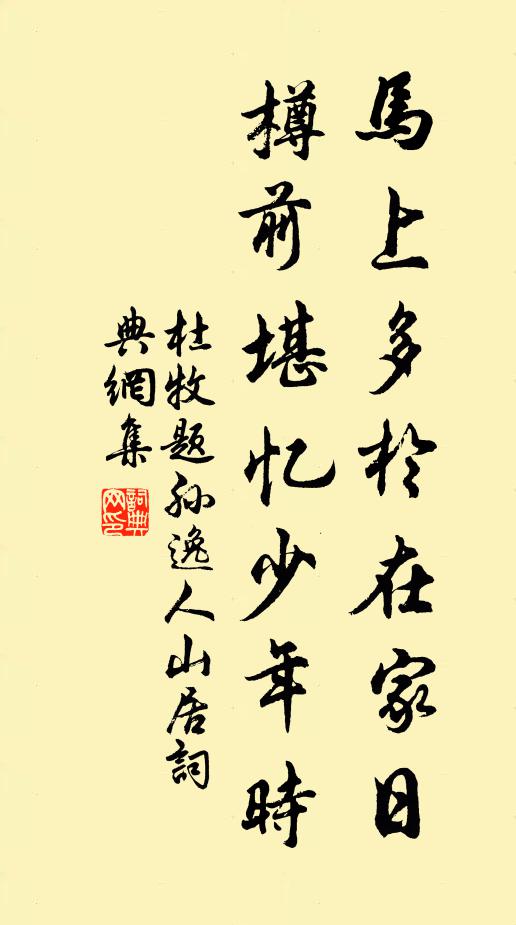 馬上多於在家日
樽前堪忆少年時
杜牧题孙逸人山居詞
典網集
詞典网印